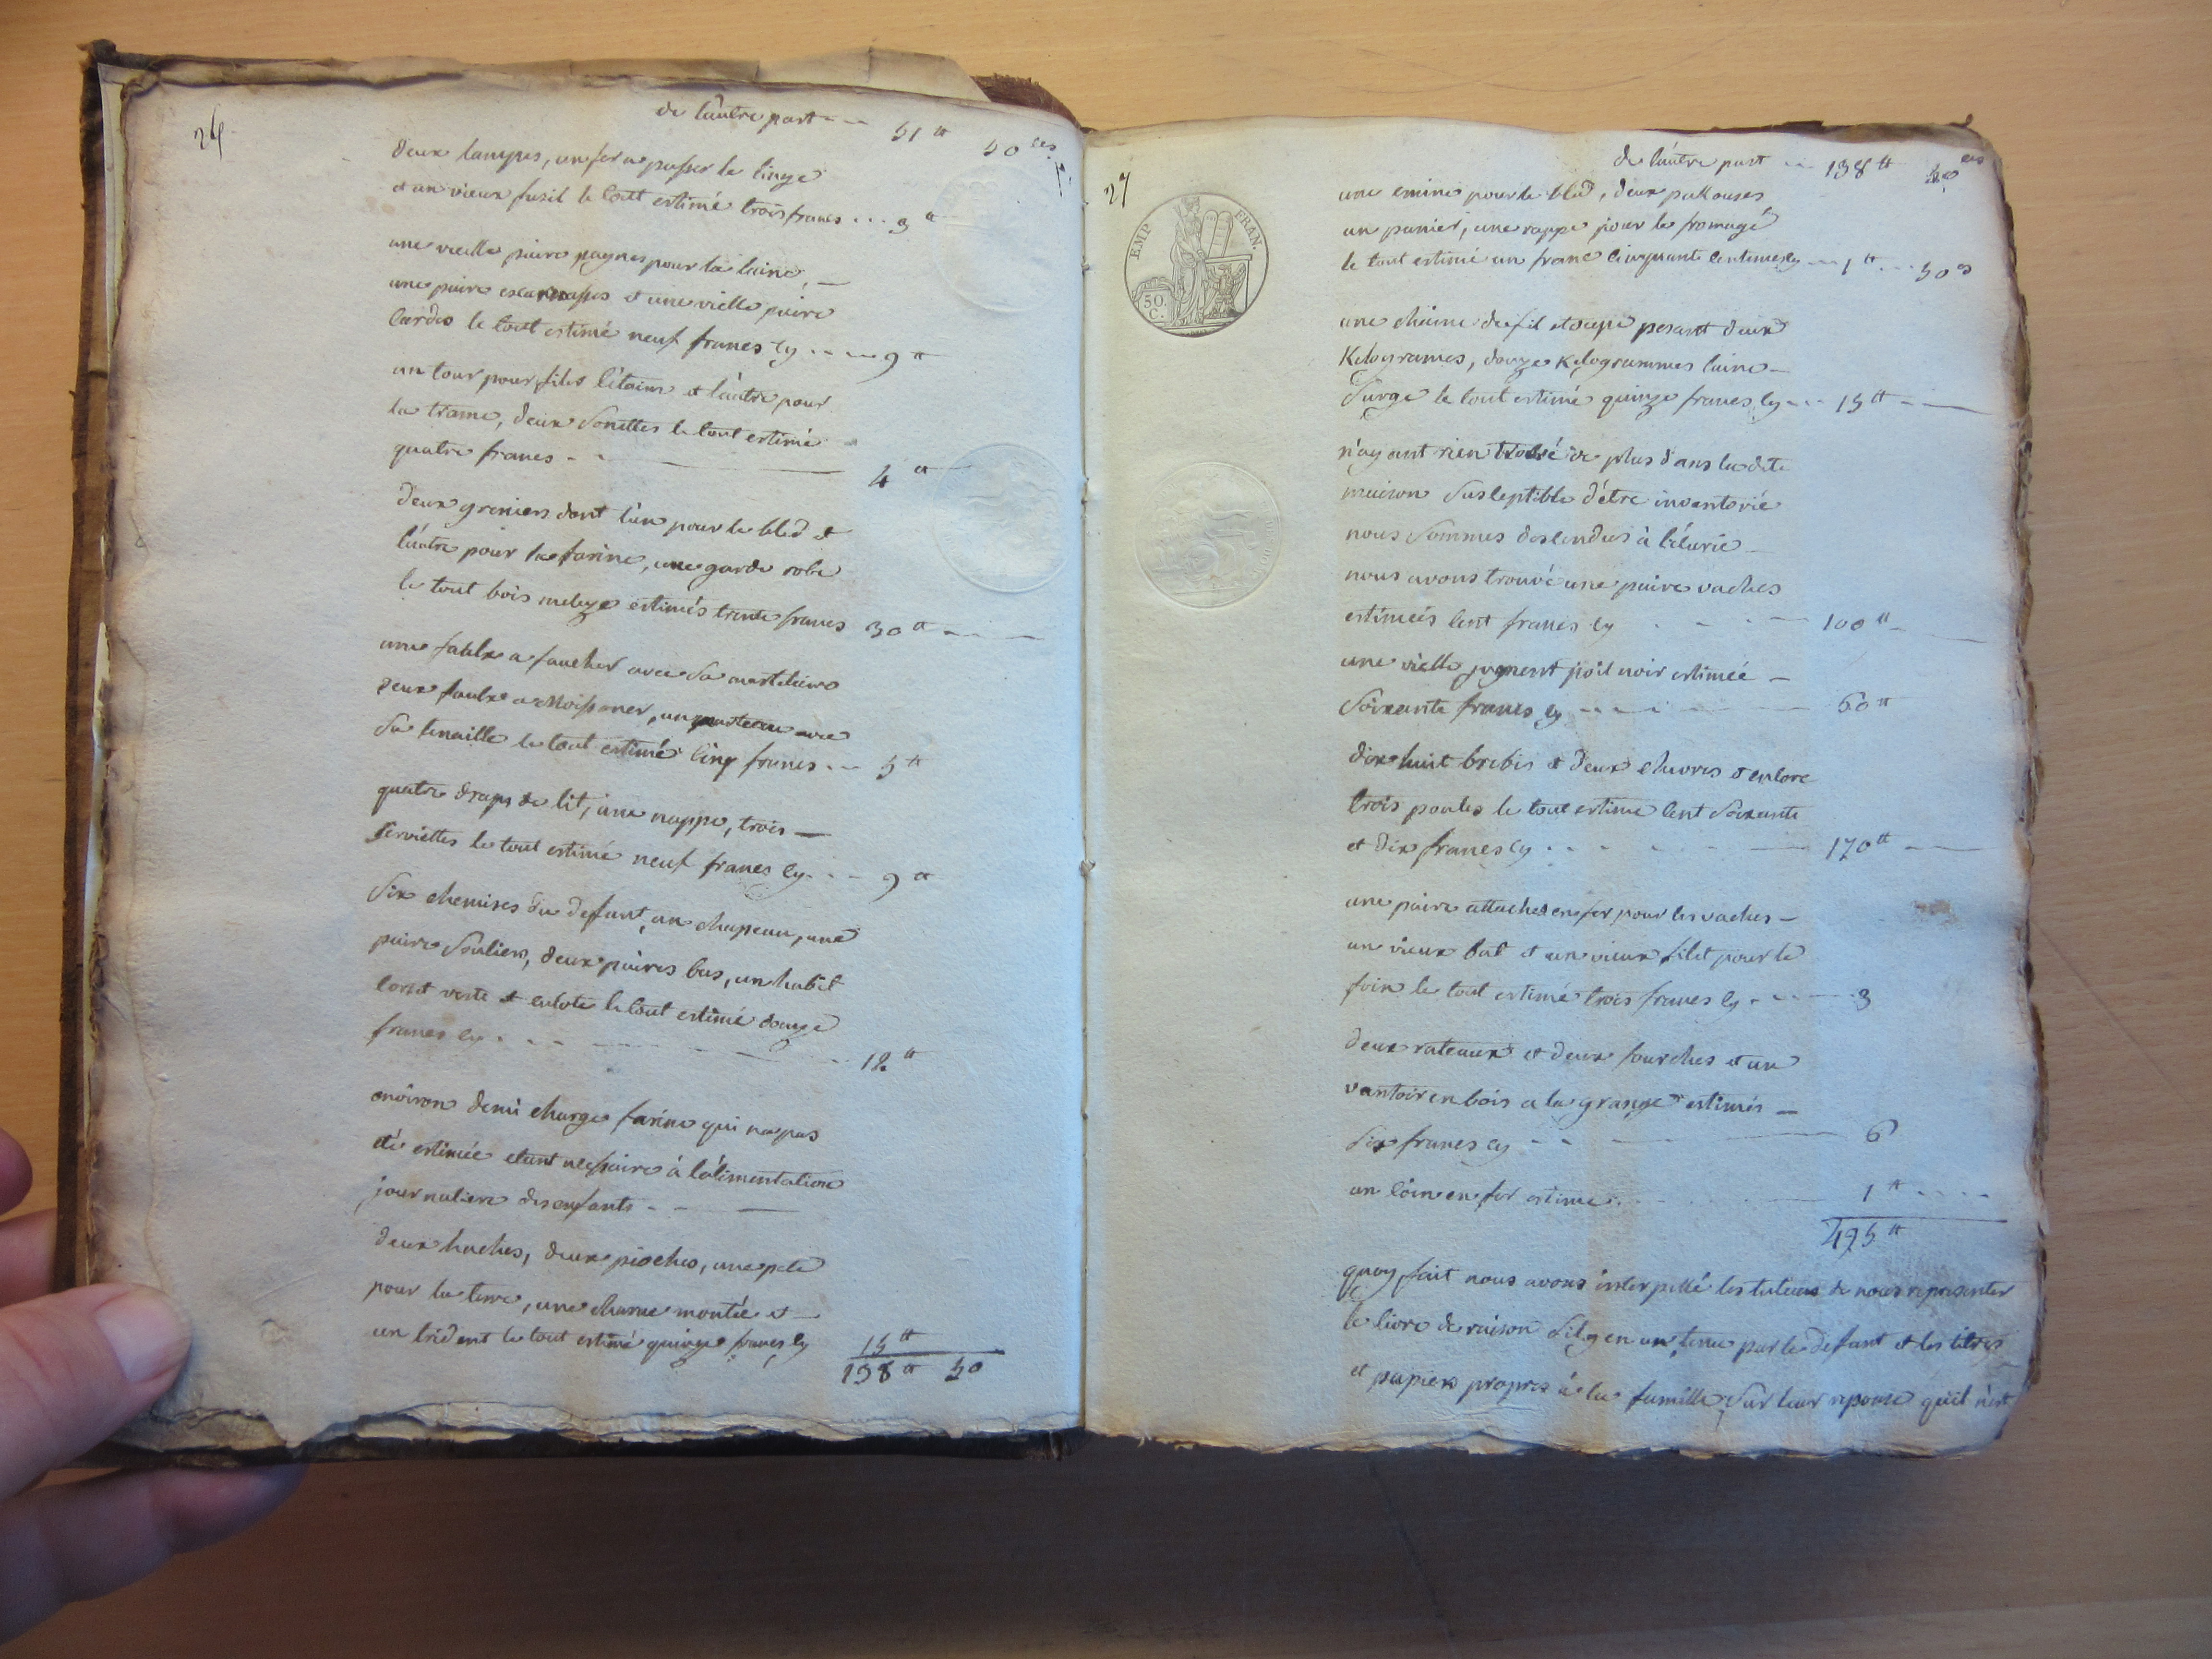 26
de l'autre part --- 51 ₶ 50 ces
deux lampes, un fer a passer le linge
et un vieux fusil le tout estimé trois francs ... 3 ₶
une vieille paire paignes pour la laine, —
une paire et une vielle paire
cardes le tout estimé neuf francs cy ---- 9 ₶
un tour pour filer l'étaim et l'autre pour
la trame, deux sonettes le tout estimé
quatre francs - - — 4 ₶
deux greniers dont l'un pour le bled et
l'autre pour la farine, une garde robe
le tout bois meleze estimés trente francs 30 ₶ - - —
une faulx a faucher avec sa
deux faulx a moissoner, un avec
sa tenaille le tout estimé cinq francs --- 5 ₶
quatre draps de lit, une nappe, trois —
serviettes le tout estimé neuf francs cy --- 9 ₶
six chemises du defunt, un chapeau, une
paire souliers, deux paires bas, un habit
corset veste et culote le tout estimé douze
francs cy - - - — 12 ₶
environ demi charge farine qui n'a pas
été estimée etant nessaire à l'alimentation
journaliere des enfants - - —
deux haches, deux pioches, une pele
pour la terre, une charue montée et —
un trident le tout estimé quinze francs cy 15 ₶
138 ₶ 50
27
EMP. FRAN.
50. C.
de l'autre part --- 138 ₶ 50 ces
une emine pour le bled, deux
un panier, une rappe pour le fromage
le tout estimé un franc cinquante centimes cy --- 1 ₶ --- 50 cs
une chaine de fil etoupe pesant deux
Kilogrames, douze Kilogrammes laine —
surge le tout estimé quinze francs cy --- 15 ₶ - —
n'ayant rien trouvé de plus dans la dite
maison susceptible d'être inventorié
nous sommes descendus à l'écurie —
nous avons trouvé une paire vaches
estimeés cent francs cy - - - — 100 ₶ - —
une vielle jument poil noir estimée —
soixante francs cy - - - — 60 ₶
dix huit brebis et deux chevres et encore
trois poules le tout estimé cent soixante
et dix francs cy - - - — 170 ₶ —
une paire attaches en fer pour les vaches —
un vieux bat et un vieux filet pour le
foin le tout estimé trois francs cy - - — 3
deux rateaux et deux fourches et un
vantoir en bois a la grange estimés —
six francs cy - - — 6
un coin en fer estimé - - — 1 ₶ - - - -
495 ₶
quoy fait nous avons interpellé les tuteurs de nous representer
le livre de raison sil y en a un tenu par le defunt et les titres
et papiers propres à la famille, sur leur reponse qu'il n'est